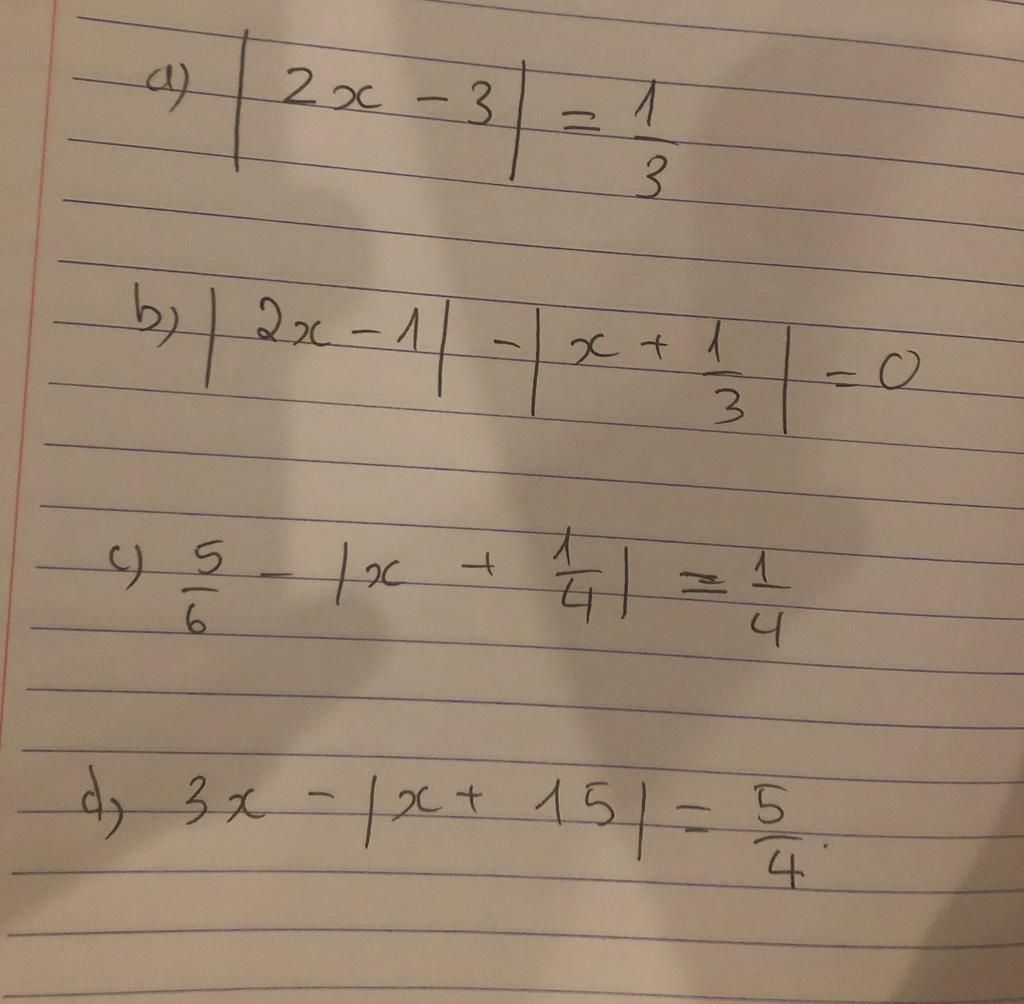 a) |2x - 3| = 1/3
b) |2x - 1| - |x + 1/3| = 0
c) 5/6 - |x + 1/4| = 1/4
d) 3x - |x + 15| = 5/4.